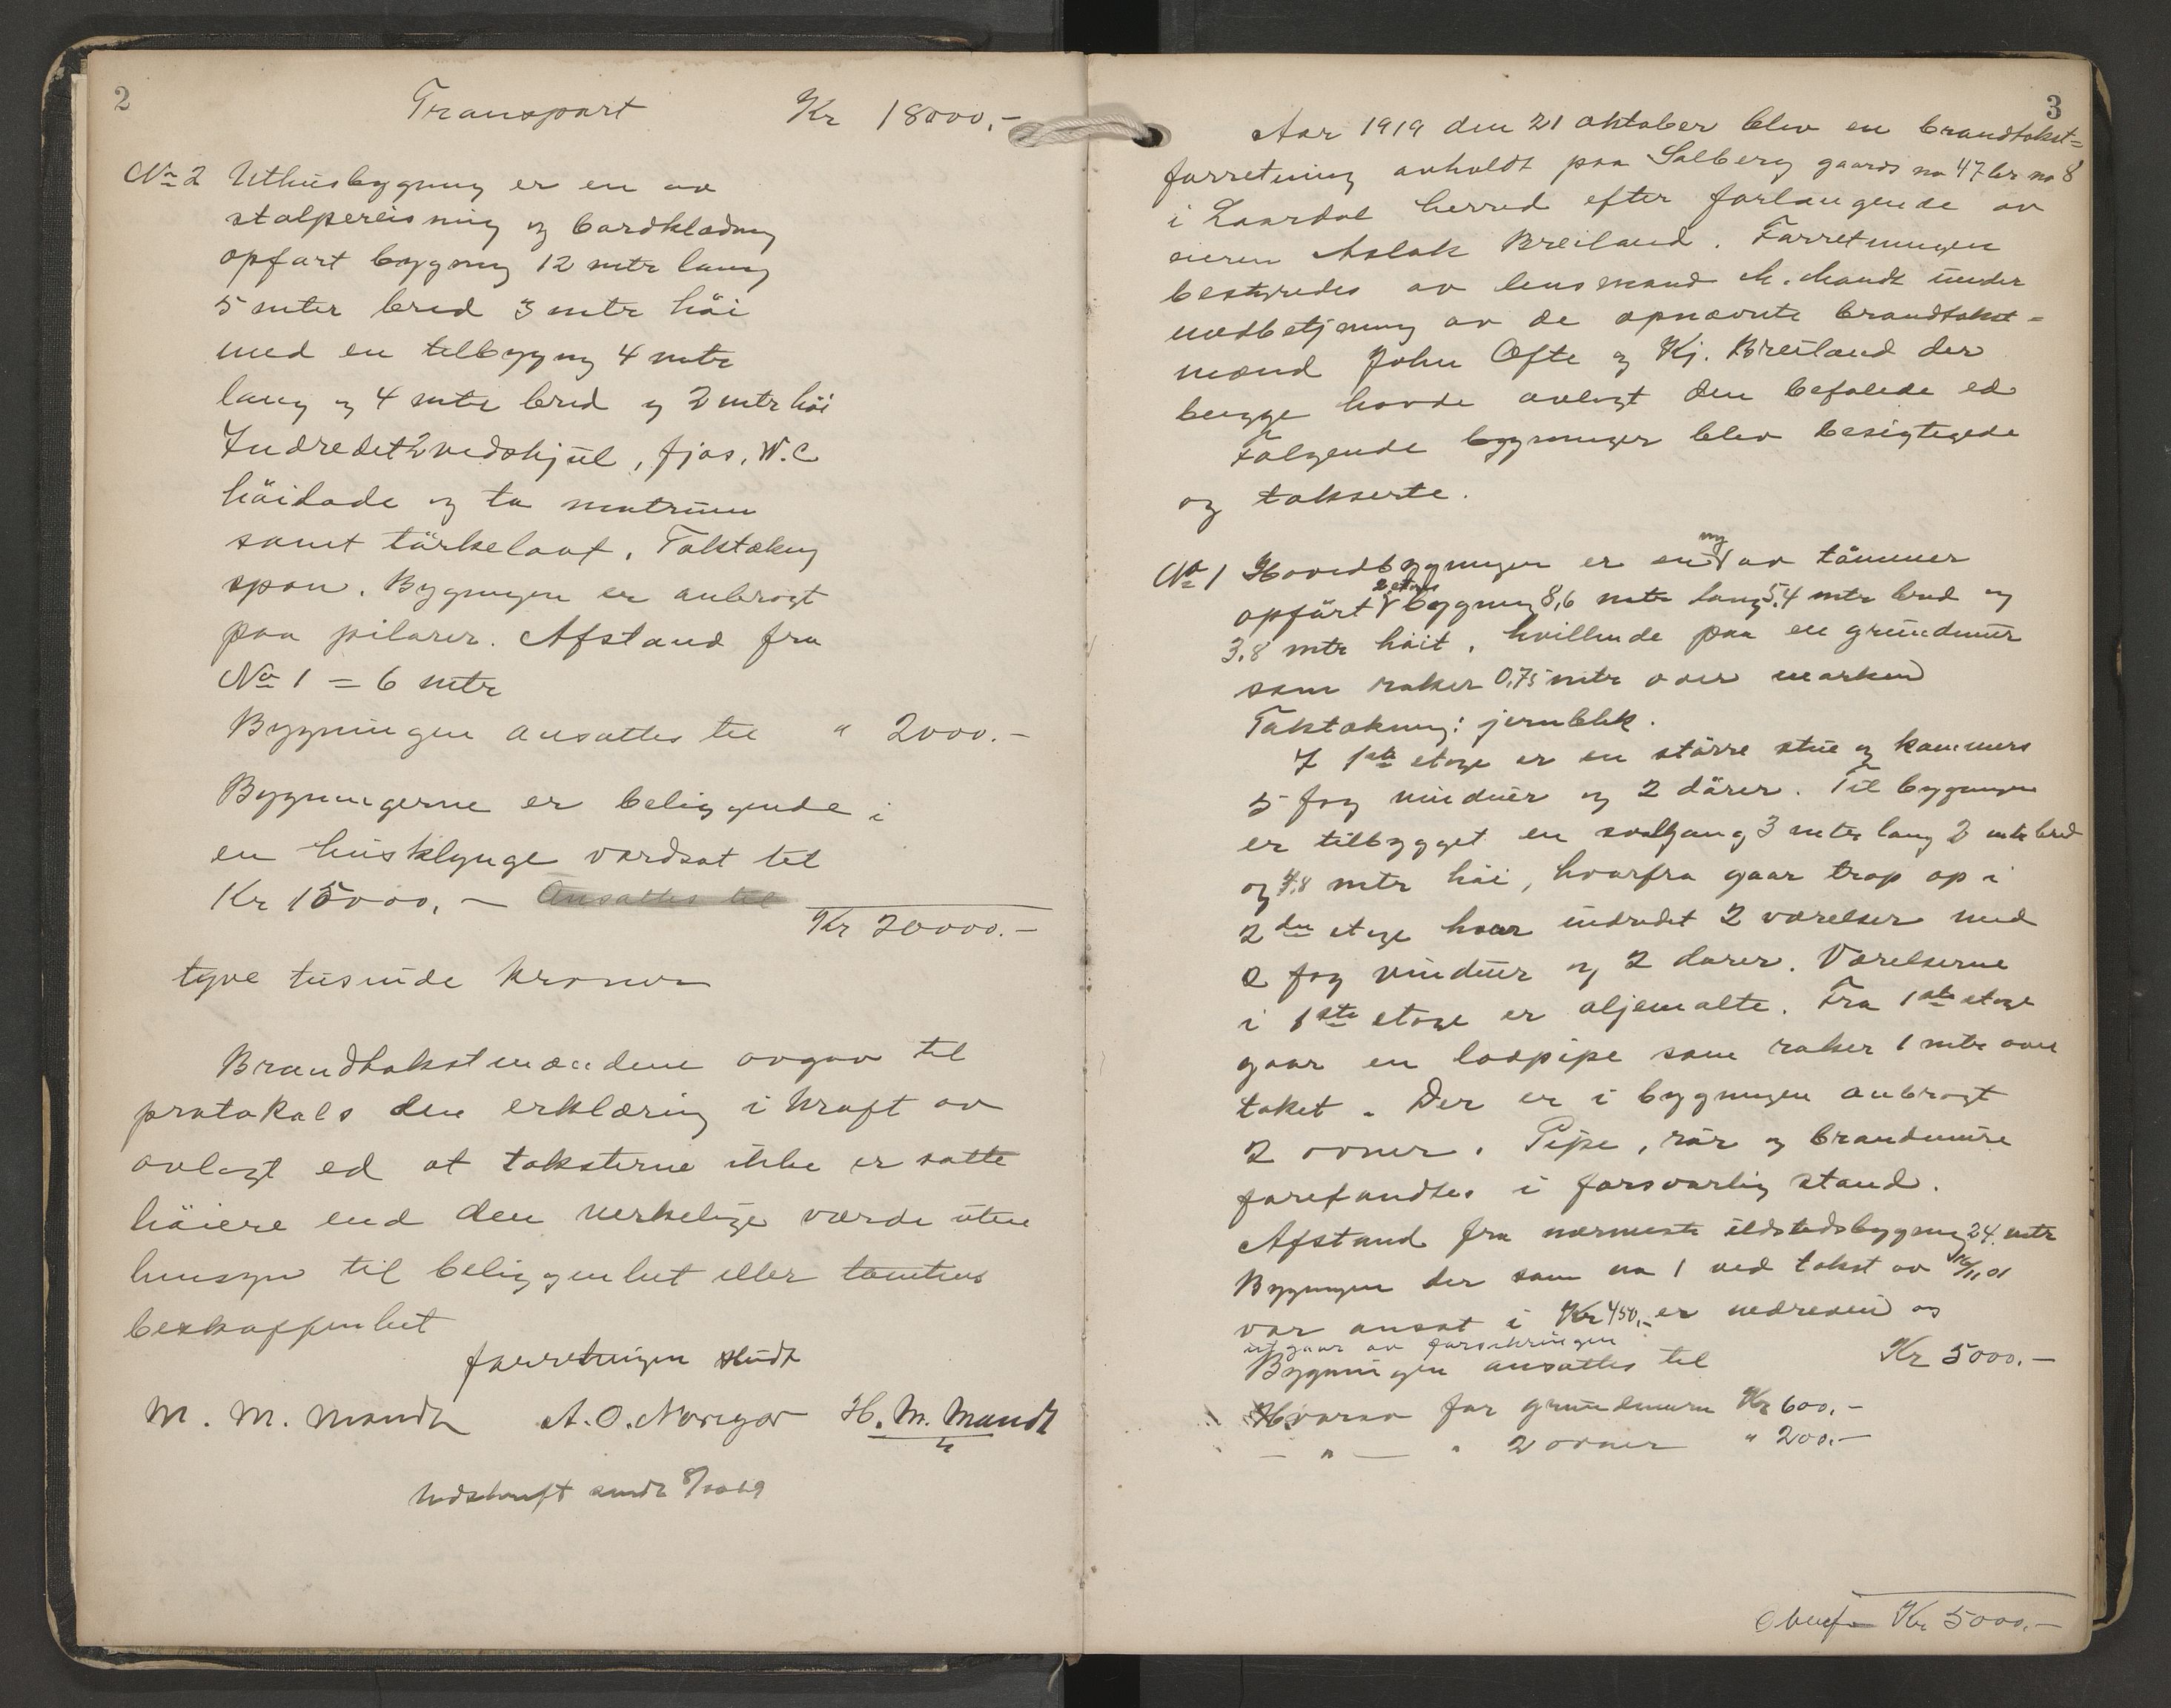 2
Transport Kr 18000,-
No 2 Uthusbygning er en av
stolpereisning og bordklædning
opført bygning 12 mtr lang
5 mter bred 3 mtr höi
med en tilbygng 4 mtr
lang og 4 mtr bred og 2 mtr höi
Indredet 2 vedskjul, fjøs, W.C
höilade og to matrum
samt tørkeloft. Taktækng
spon. Bygningen er anbragt
paa pilarer. Afstand fra
No 1 = 6 mtr
Bygningen ansattes til " 2000.-
Bygningerne er beliggende i
en husklynge værdsat til
Kr 15000,- Ansattes til
Kr 20000.-
tyve tusinde kroner
Brandtakstmændene avgav til
protokols den erklæring i kraft av
avlagt ed at taksterne ikke er satte
höiere end den verkelige værdi uten
hensyn til beliggenhet eller tomtens
beskaffenhet
forretningen sludt
M. M. Mandt A. O. Norgar H. M. Mandt
Udskrift sendt 8/10 19
3
Aar 1919 den 21 oktober blev en brandtakst=
forretning avholdt paa Solberg gaards no 47 br no 8
i Laardal herred efter forlangende av
eieren Aslak Breiland. Forretningen
bestyredes av lensmand M. Mandt under
medbetjening av de opnævnte brandtakst=
mænd John Ofte og Kj. Breiland der
begge havde avlagt den befalede ed
Følgende bygninger blev besigtegede
og takserte.
No 1 Hovedbygningen er en ny av tömmer
opført 2 etages bygning 8,6 mtr lang 5,4 mtr bred og
3,8 mtr höit, hvillende paa en grundmur
som raker 0,75 mtr over marken
Taktækning: jernblik.
I 1ste etage er en större stue og kammers
5 fag vinduer og 2 dörer. Til bygningen
er tilbygget en svalgang 3 mter lang 2 mtr bred
og 4,8 mtr höi, hvorfra gaar trap op i
2den etage hvor indredet 2 værelser med
2 fag vinduer og 2 dører. Værelserne
i 1ste etage er oljemalte. Fra 1ste etage
gaar en lodpipe som raker 1 mtr over
taket. Der er i bygningen anbragt
2 ovner. Pipe, rör og brandmure
forefandtes i forsvarlig stand.
Afstand fra nærmeste ildstedsbygning 24 mtr
Bygningen der som no 1 ved takst av 16/11 01
var ansat i Kr 450,- er nedreven og
utgaar av forsikringen
Bygningen ansattes til Kr 5000.-
Hvorav for grundmuren Kr 600,-
— " — " 2 ovner " 200.-
Overf Kr 5000,-